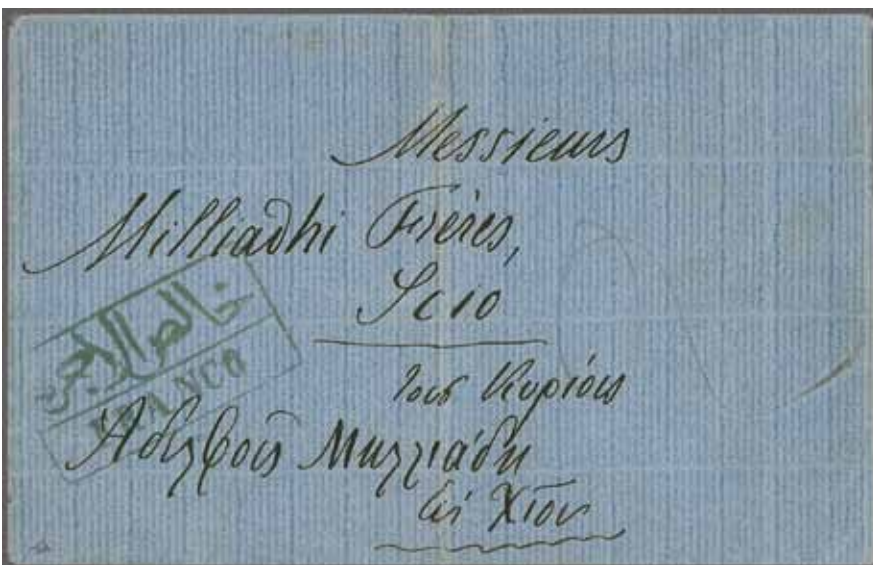 Messieurs
Milliadhi Frères,
Scio
خالص الاجره
FRANCO
τοις Κυρίοις
Ἀδελφοῖς Μιλλιάδη
εἰς Χῖον